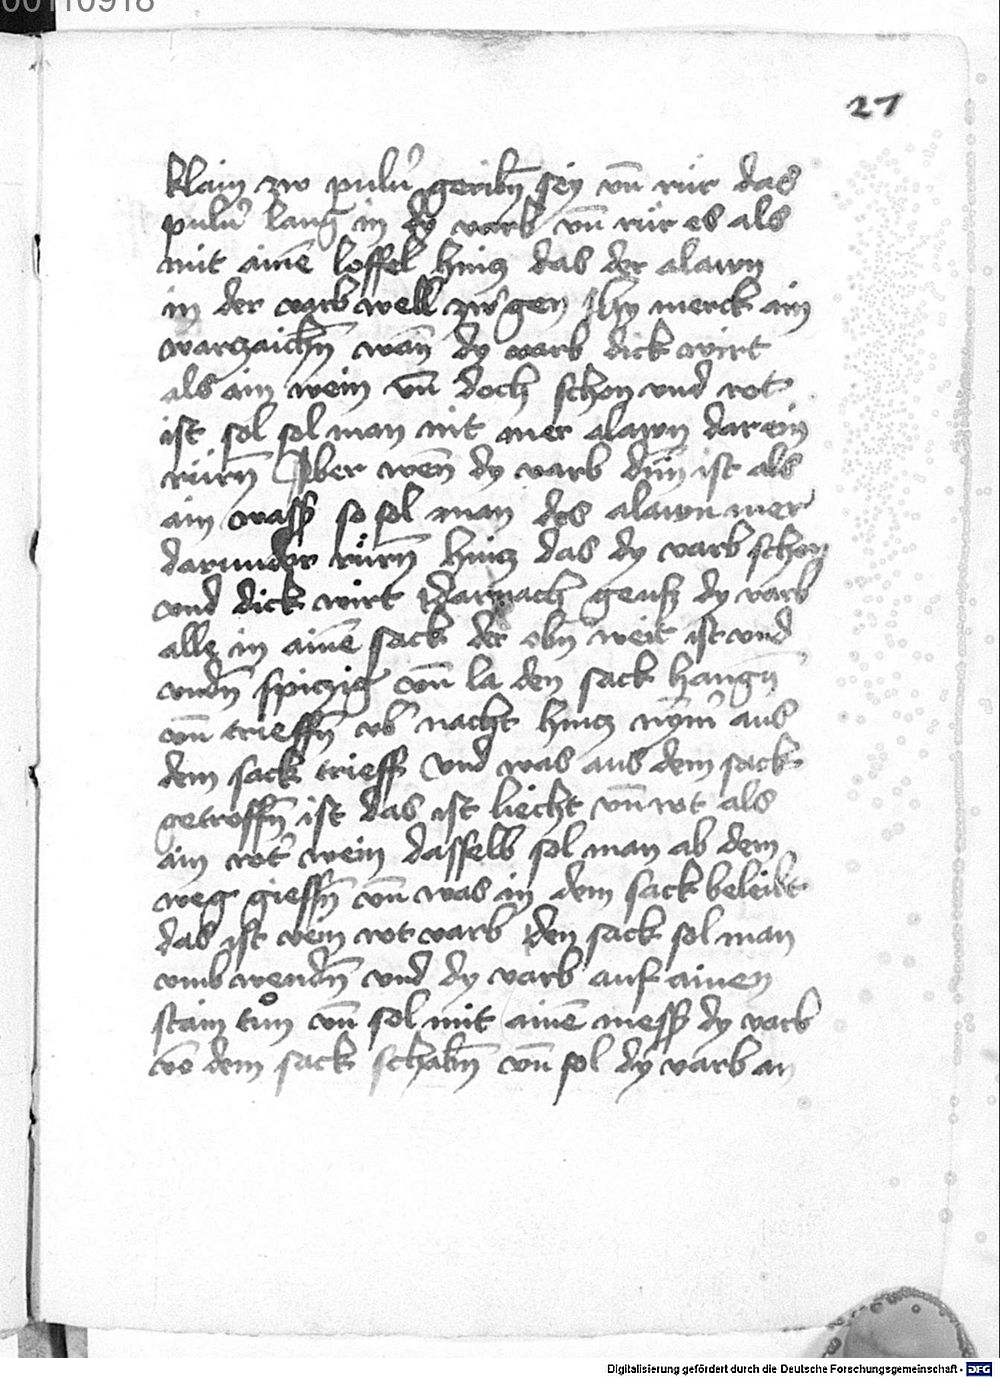 00110918
27
klain zw puluer geribn̄ sey vn̄ rür das
puluer lang in dy varb vn̄ rür es als
mit ainē loffel hincz das der alawn
in der varb well zwgen Hy merck ain
warczaichn̄ wan̄ dy varb dick wirt
als ain wein vn̄ doch schon vnd rot
ist sol sol man nit mer alawn darein
rürn̄ Aber wen̄ dy varb dün̄ ist als
ain wasser so sol man des alawn mer
darunder rürn̄ hincz das dy varb schon
vnd dick wirt Darnach geusz dy varb
alle in ainē sack der obn̄ weit ist vnd
vndn̄ spiczig vn̄ la den sack hangn̄
vn̄ trieffn̄ vber nacht hincz nymer aus
dem sack trieff Vnd was aus dem sack
getroffn̄ ist das ist liecht vn̄ rot als
ain roter wein dasselb sol man ab dem
weg giessn̄ vn̄ was in dem sack beleibt
das ist rein rot varb Den sack sol man
vmb wendn̄ vnd dy varb auf ainen
stain tůn vn̄ sol mit ainē messer dy varb
vō dem sack schabn̄ vn̄ sol dy varb an
Digitalisierung gefördert durch die Deutsche Forschungsgemeinschaft - DFG